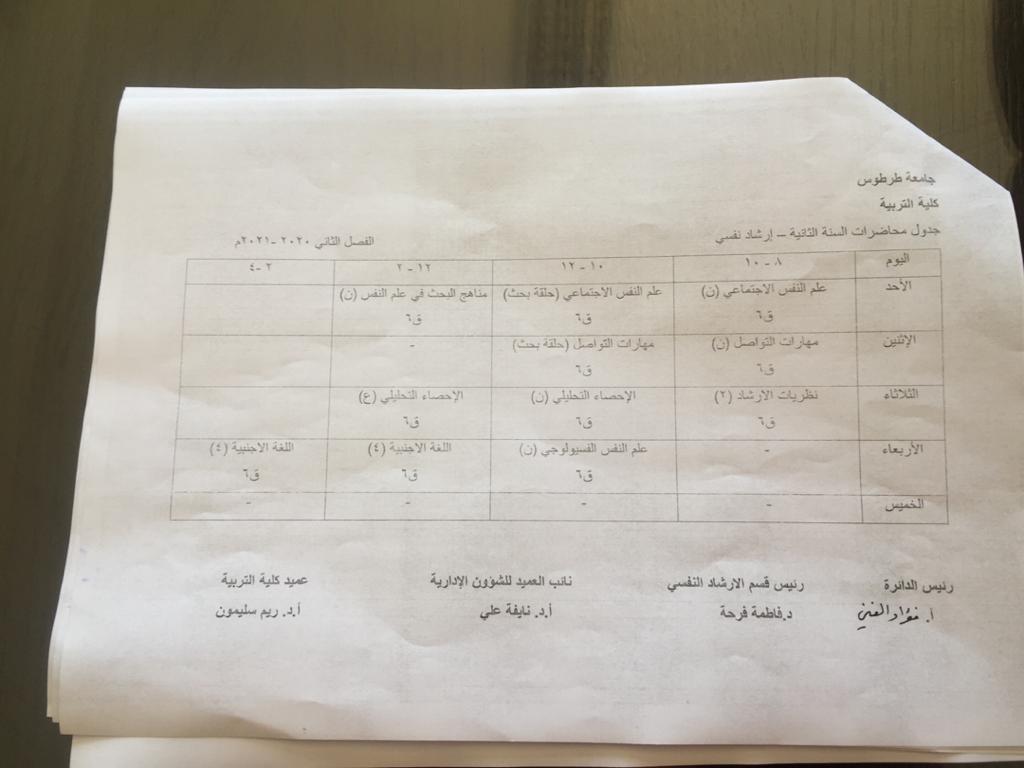 جامعة طرطوس
كلية التربية
جدول محاضرات السنة الثانية – إرشاد نفسي الفصل الثاني ٢٠٢٠ -٢٠٢١م
اليوم ٨ - ١٠ ١٠ - ١٢ ١٢ - ٢ ٢ -٤
الأحد علم النفس الاجتماعي (ن) علم النفس الاجتماعي (حلقة بحث) مناهج البحث في علم النفس (ن)
ق٦ ق٦ ق٦
الإثنين مهارات التواصل (ن) مهارات التواصل (حلقة بحث) -
ق٦ ق٦
الثلاثاء نظريات الارشاد (٢) الإحصاء التحليلي (ن) الإحصاء التحليلي (ع)
ق٦ ق٦ ق٦
الأربعاء - علم النفس الفسيولوجي (ن) اللغة الاجنبية (٤) اللغة الاجنبية (٤)
ق٦ ق٦ ق٦
الخميس - - - -
رئيس الدائرة رئيس قسم الارشاد النفسي نائب العميد للشؤون الإدارية عميد كلية التربية
أ. فؤاد الغني د.فاطمة فرحة أ.د. نايفة علي أ.د. ريم سليمون